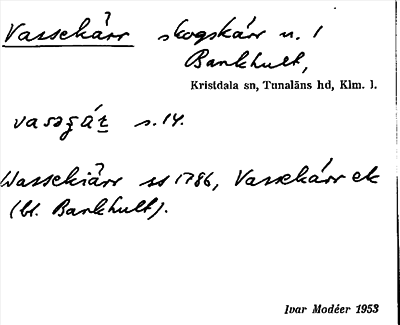 Vassekärr skogskärr n. 1
Bankhult,
Kristdala sn, Tunaläns hd, Klm. l.
s. 14.
Wassekiärr ss 1786, Vassekärr ek
(bl. Bankhult).
Ivar Modéer 1953